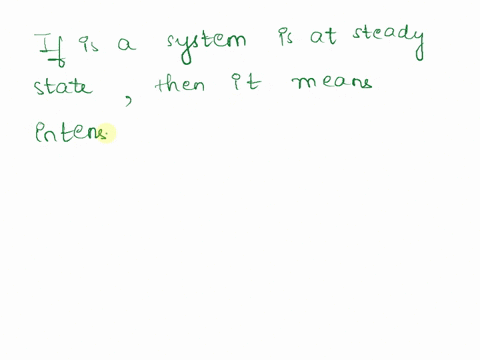 If is a system is at steady
state, then it means
intens